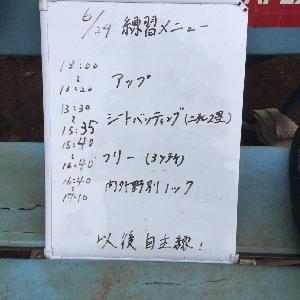 6/29 練習メニュー
13:00
〜
13:20 アップ
13:30
〜
15:35 シートバッティング(二死2塁)
15:40
〜
16:40 フリー(3ヶ所)
16:40
〜
17:10 内外野別ノック
以後自主練!